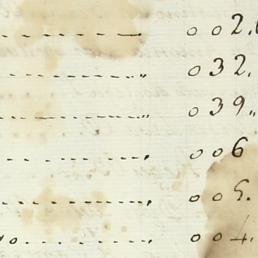 002.
032.
039.
006
005.
004.